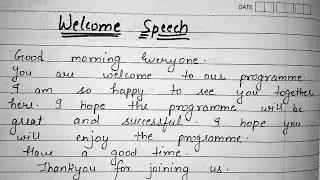 DATE
Welcome Speech
Good morning Everyone.
You are welcome to our programme.
I am so happy to see you together
here. I hope the programme will be
great and successful. I hope you
will enjoy the programme.
Have a good time.
Thankyou for joining us.